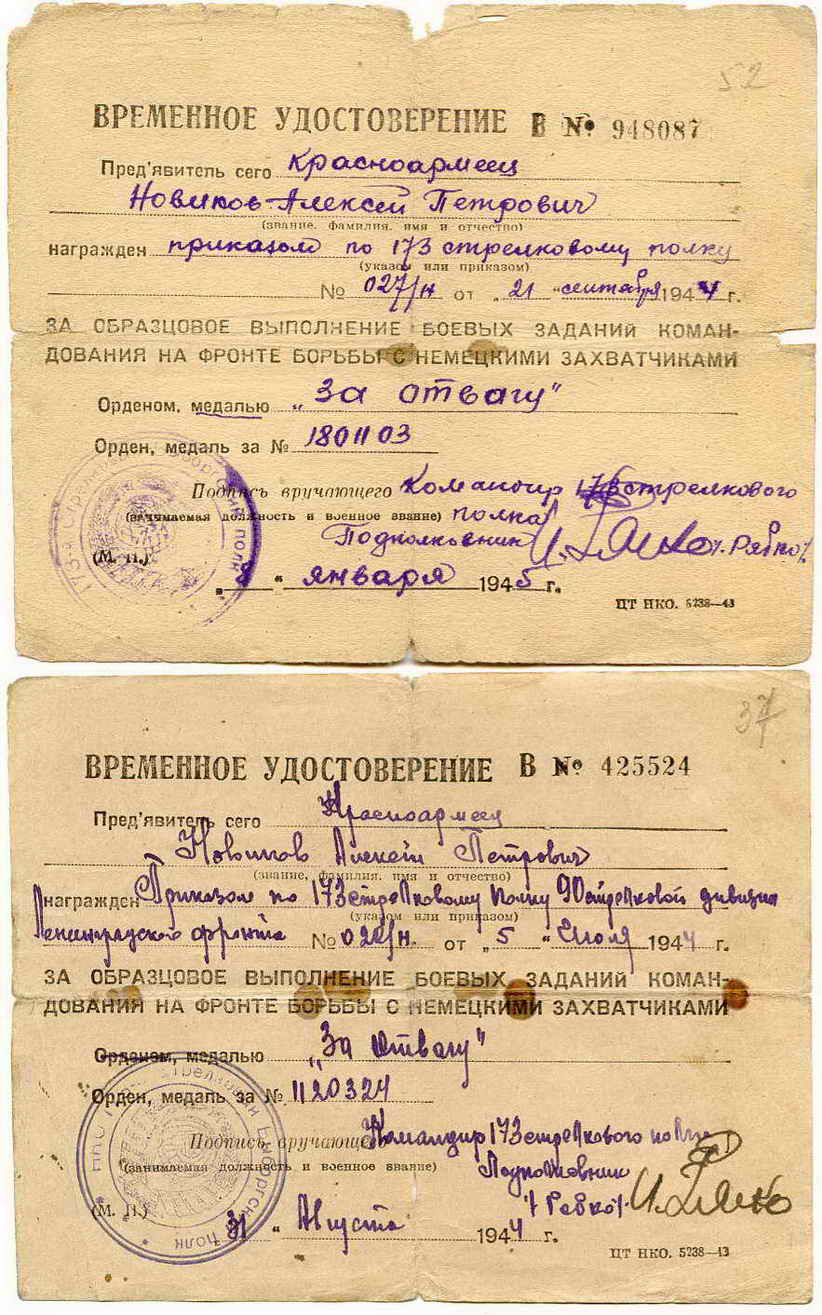 52
ВРЕМЕННОЕ УДОСТОВЕРЕНИЕ В № 948087
Пред'явитель сего Красноармеец
Новиков Алексей Петрович
(звание, фамилия, имя и отчество)
награжден приказом по 173 стрелковому полку
(указом или приказом)
№ 027/н от „21 “ сентября 1944 г.
ЗА ОБРАЗЦОВОЕ ВЫПОЛНЕНИЕ БОЕВЫХ ЗАДАНИЙ КОМАН-
ДОВАНИЯ НА ФРОНТЕ БОРЬБЫ С НЕМЕЦКИМИ ЗАХВАТЧИКАМИ
Орденом, медалью „За отвагу"
Орден, медаль за № 1801103
Подпись вручающего Командир 173 стрелкового
(занимаемая должность и военное звание) полка
Подполковник /. Рябко/.
(М. П.)
„ “ января 1945 г.
ЦТ НКО. 5238—43
37
ВРЕМЕННОЕ УДОСТОВЕРЕНИЕ В № 425524
Пред'явитель сего Красноармеец
Новиков Алексей Петрович
(звание, фамилия, имя и отчество)
награжден Приказом по 173 стрелковому полку 90 стрелковой дивизии
(указом или приказом)
Ленинградского фронта № от „5 “ Июля 1944 г.
ЗА ОБРАЗЦОВОЕ ВЫПОЛНЕНИЕ БОЕВЫХ ЗАДАНИЙ КОМАН-
ДОВАНИЯ НА ФРОНТЕ БОРЬБЫ С НЕМЕЦКИМИ ЗАХВАТЧИКАМИ
Орденом, медалью „За Отвагу"
Орден, медаль за № 1120324
Подпись вручающего Командир 173 стрелкового полка
(занимаемая должность и военное звание) Подполковник
/ Рябко /.
(М. П.)
31 “ Августа 1944 г.
ЦТ НКО. 5238—43